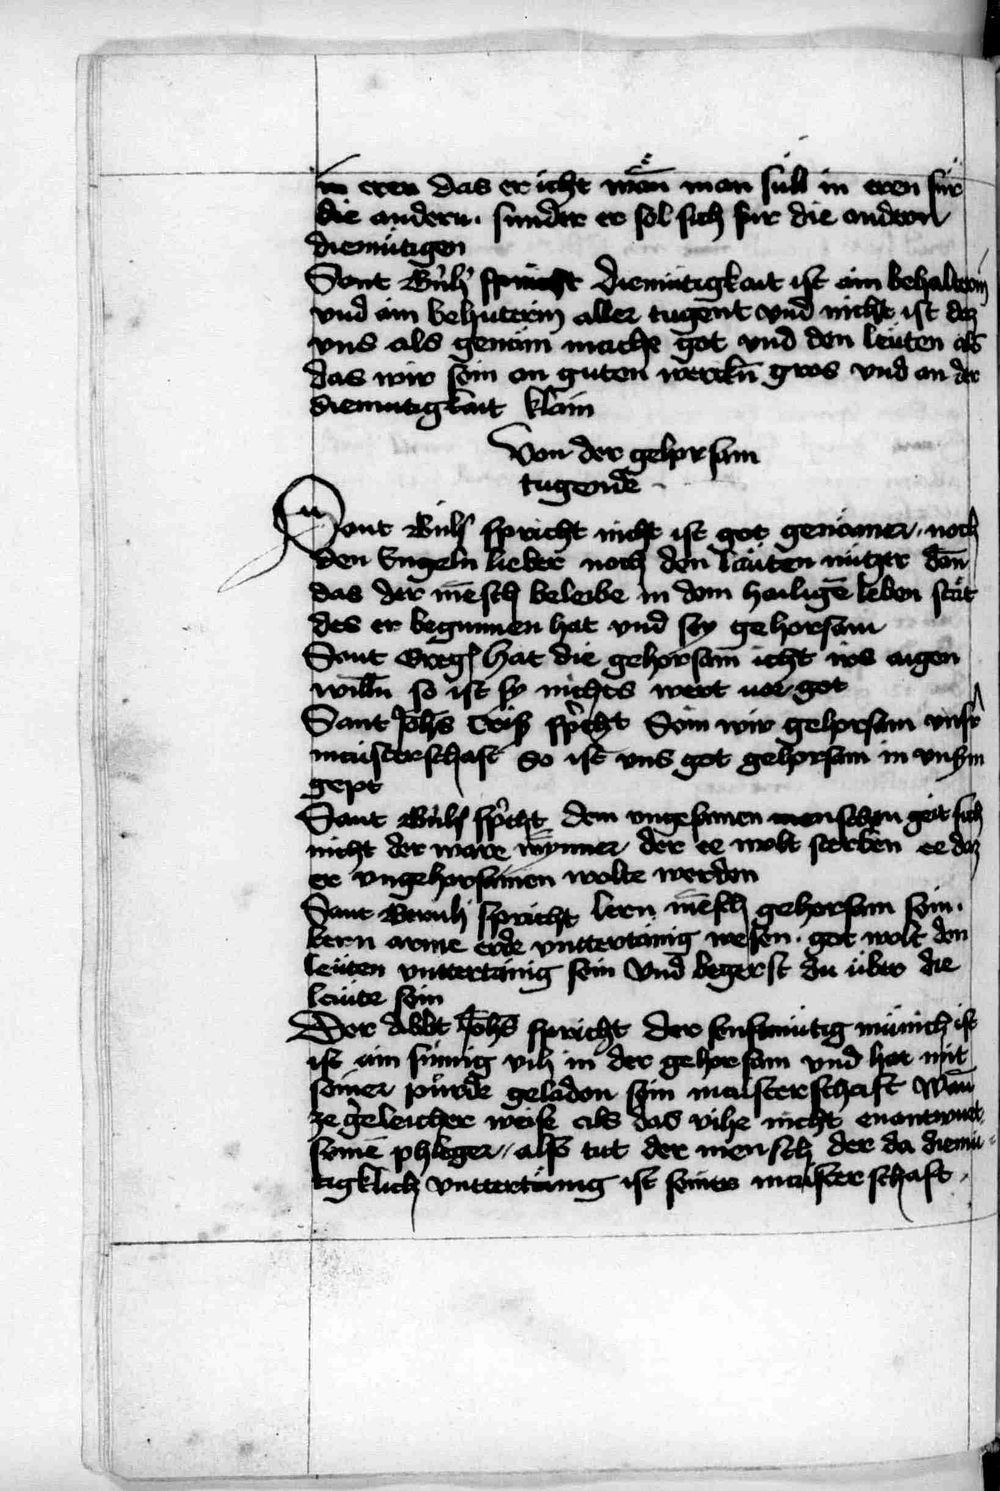 in eren das er icht wän man süll in eren für
die andern. sunder er sol sich für die andern
diemütigen
Sant spricht diemütigkait ist ain behalterin
vnd ain behüterin aller tugent vnd nicht ist daz
vns als genäm mache got vnd den leüten als
das wir sein an guten werckn̄ gros vnd an der
diemutigkait klain
Von der gehorsam
tugende
Sant spricht nicht ist got genämer noch
den Engeln lieber noch den läuten nützer dan̄
das der mēsch beleibe in dem hailigē leben stät
des er begunnen hat vnd sey gehorsam
Sant Greg hat die gehorsam icht irs aigen
willn̄ so ist sy nichts wert vor got
Sant Johs Cris spͥcht Sein wir gehorsam vnsͬ
maisterschaft So ist vns got gehorsam in vnsͬm
gept
Sant spͥcht dem menschen geit sich
nicht der ware der ee wolt sterben ee daz
er vngehorsamen wolte werden
Sant spricht lern mēsch gehorsam sein.
lern arme erde vnttertänig wesen. got wolt den
leüten vnttertänig sein Vnd begerst du über die
leüte sein
Der Abbt Johs spricht der senfmütig münich ist
ist ain sinnig vih in der gehorsam vnd hat mit
seiner pürde geladen sein maisterschaft Wan̄
ze geleicher weise als das vihe nicht enantwurt
seinē phleger // also tut der mensch der da diemü
tigklich vnttertänig ist seiner maisterschaft.